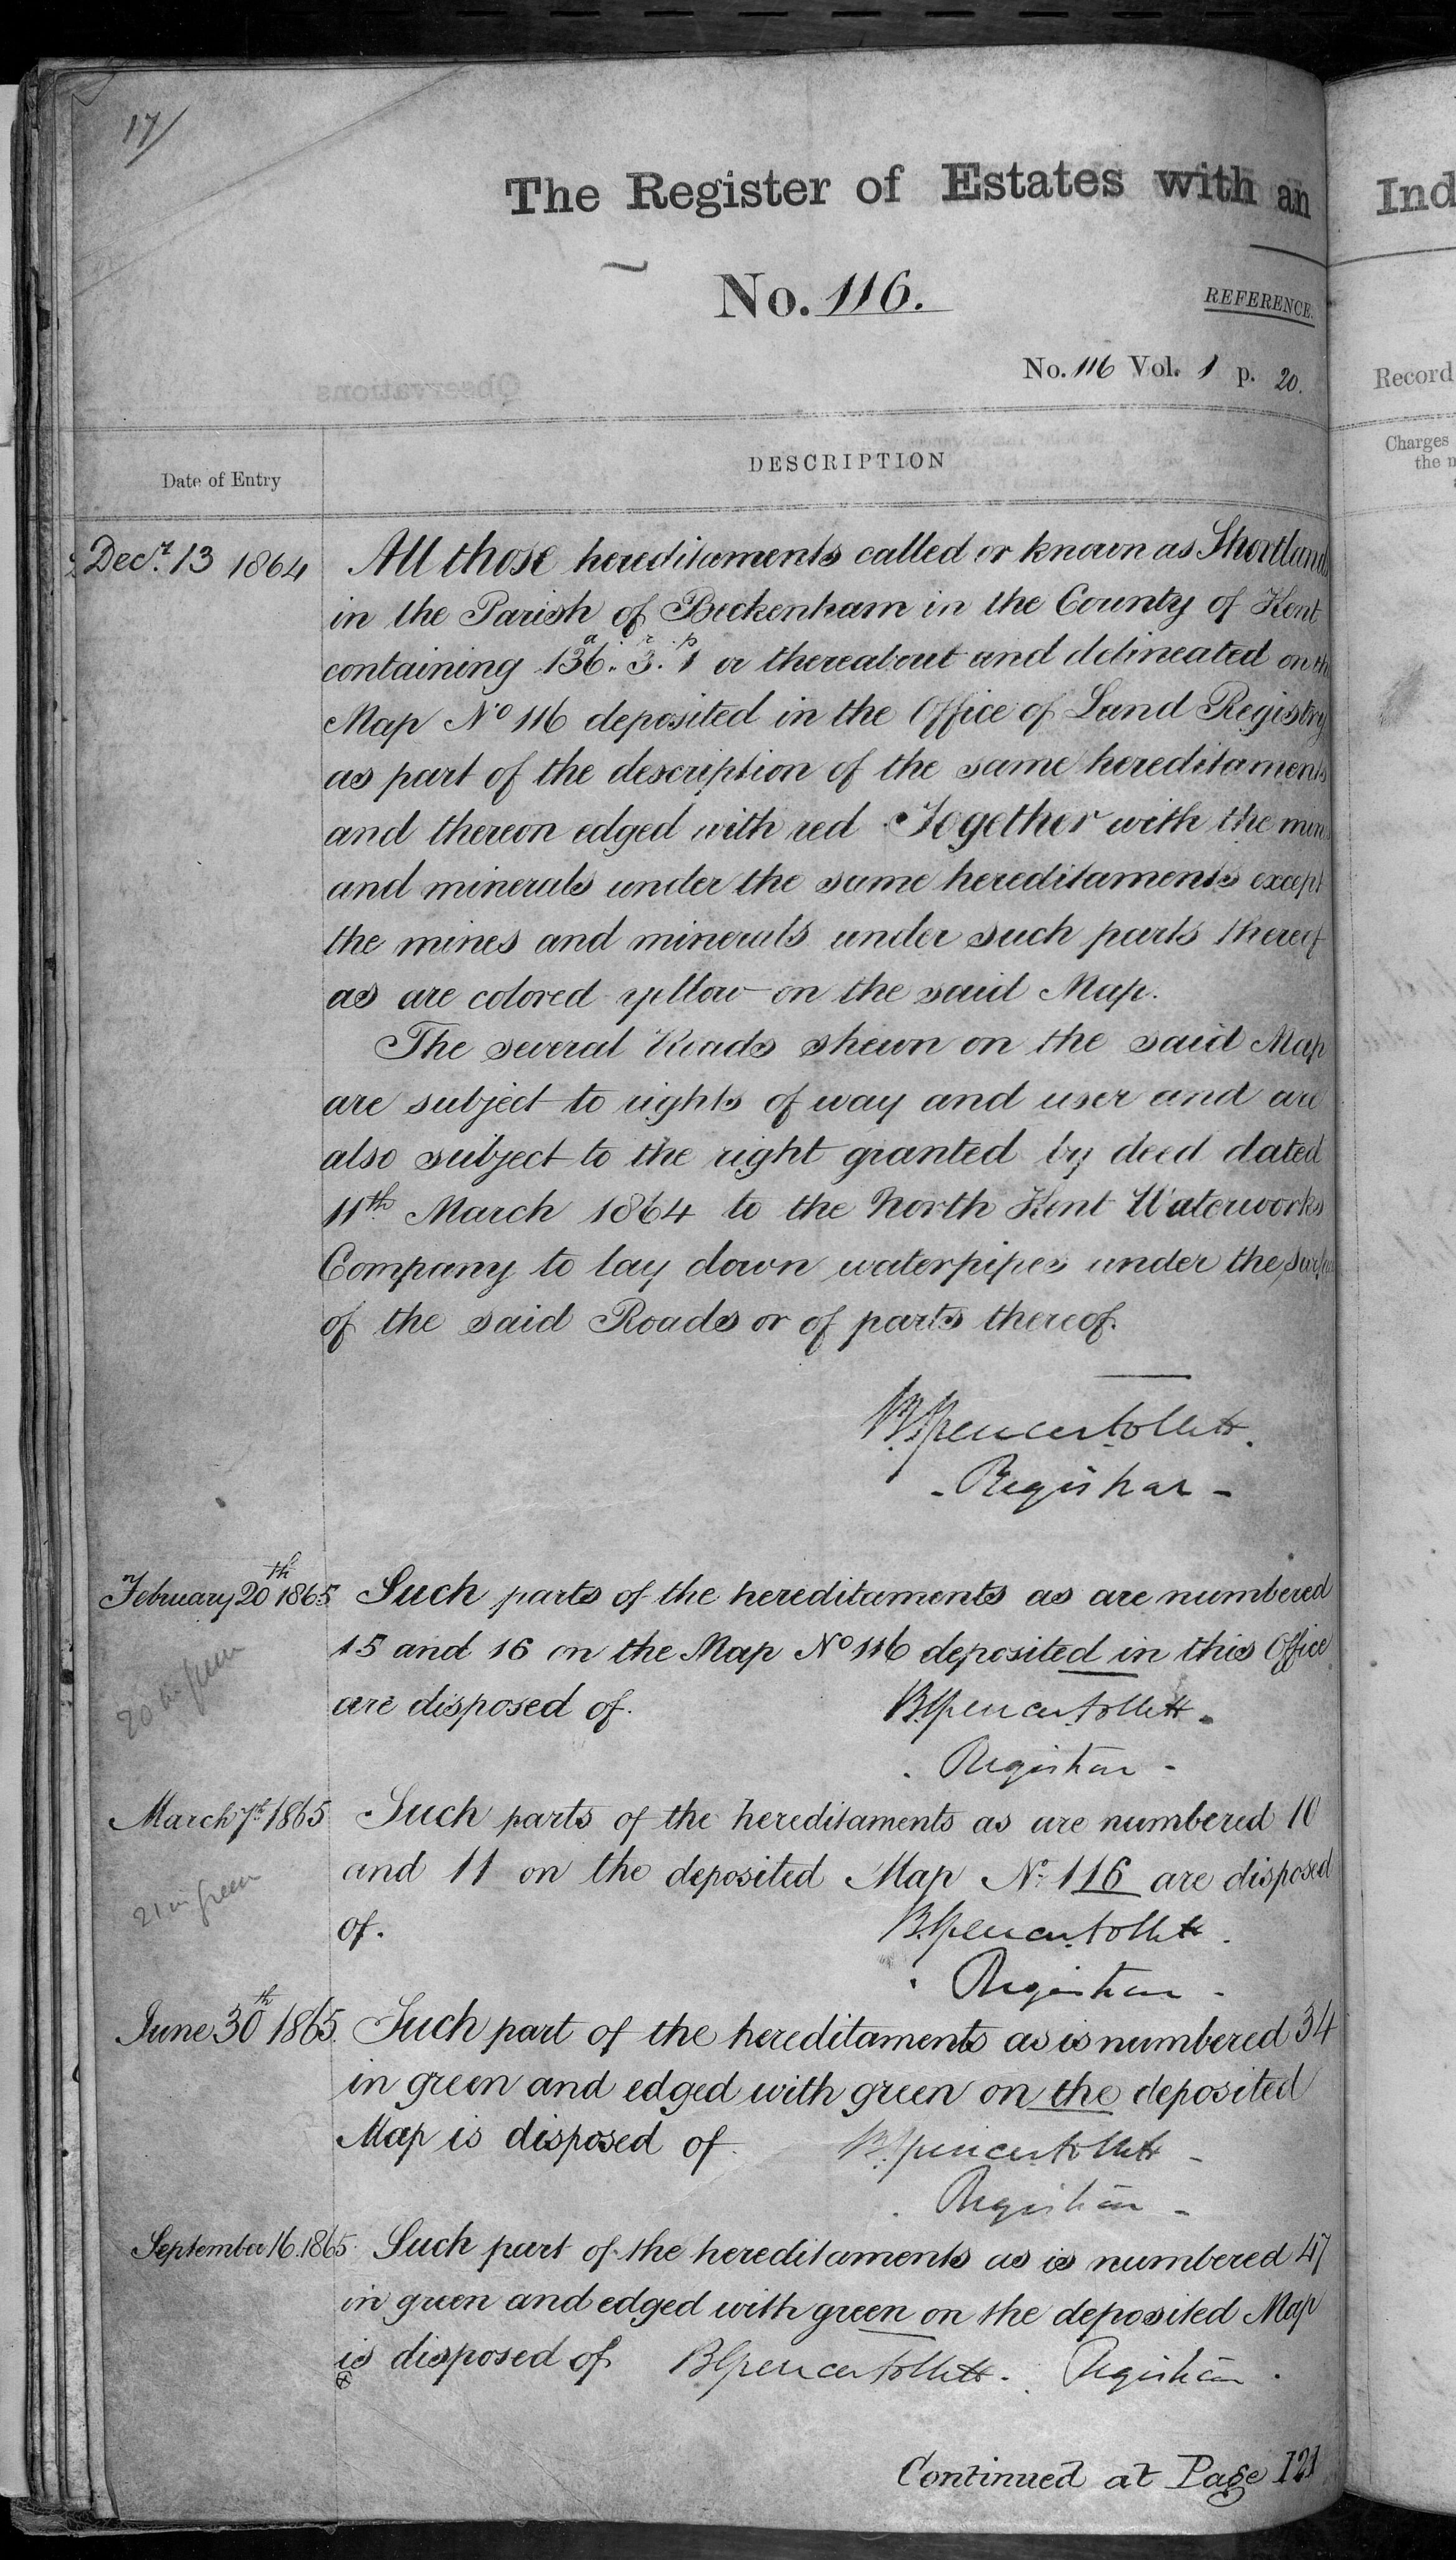 17/
The Register of Estates with an
Ind
No. 116.
REFERENCE.
No. 116 Vol. 1 p. 20.
Record
Observations
Charges
the
Date of Entry
DESCRIPTION
Decr. 13 1864 All those hereditaments called or known as Shortlands
in the Parish of Beckenham in the County of Kent
a r p
containing 136. 3. 1 or thereabout and delineated on the
Map No 116 deposited in the Office of Land Registry
as part of the description of the same hereditaments
and thereon edged with red Together with the mines
and minerals under the same hereditaments except
the mines and minerals under such parts thereof
as are colored yellow on the said Map.
The several Roads shewn on the said Map
are subject to rights of way and user and are
also subject to the right granted by deed dated
11th March 1864 to the North Kent Waterworks
Company to lay down waterpipes under the surface
of the said Roads or of parts thereof.
B. Spencer Follett.
- Registrar -
February 20th 1865 Such parts of the hereditaments as are numbered
15 and 16 on the Map No 116 deposited in this Office
20 in green
are disposed of. B. Spencer Follett.
. Registrar -
March 7th 1865 Such parts of the hereditaments as are numbered 10
and 11 on the deposited Map No. 116 are disposed
21 in green
of. B. Spencer Follett.
. Registrar -
June 30th 1865. Such part of the hereditaments as is numbered 34
in green and edged with green on the deposited
Map is disposed of B. Spencer Follett -
. Registrar -
September 16. 1865. Such part of the hereditaments as is numbered 47
in green and edged with green on the deposited Map
is disposed of B Spencer Follett. Registrar.
Continued at Page 121